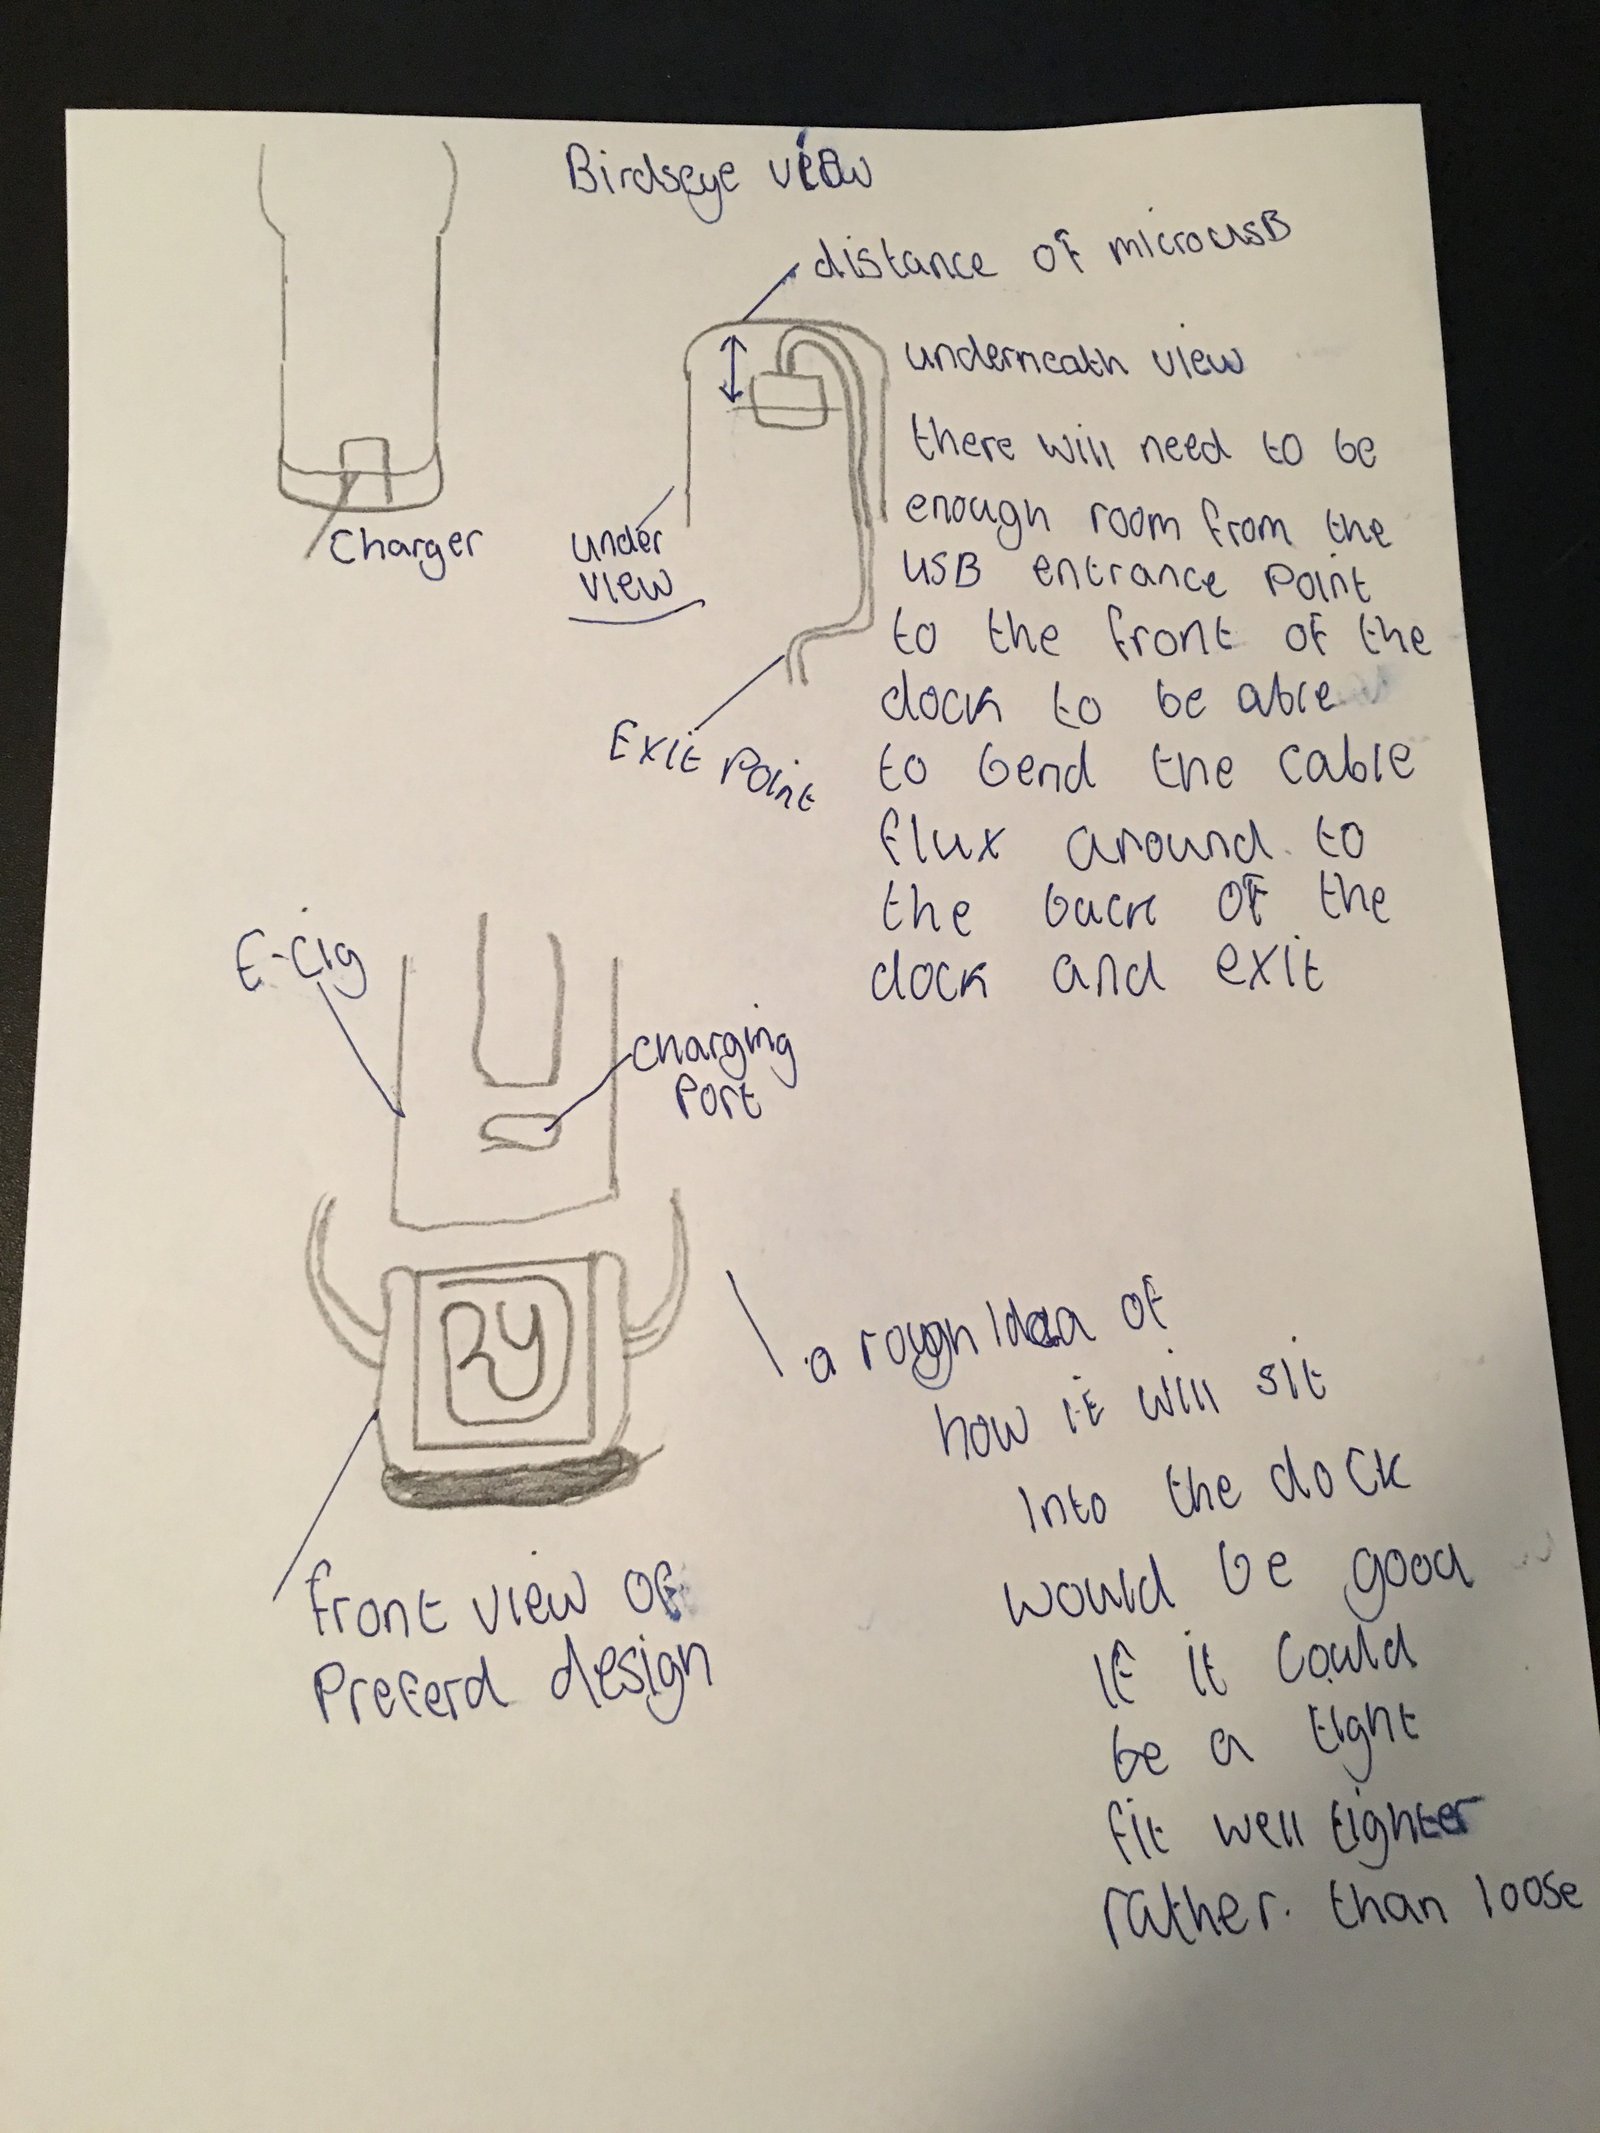 Birdseye view
distance of microUSB
underneath view
there will need to be
enough room from the
USB entrance Point
to the front of the
dock to be able
to bend the cable
flux around to
the back of the
dock and exit
Charger
under
view
Exit Point
E-cig
charging
Port
a rough Idea of
how it will sit
Into the dock
would be good
If it could
be a tight
fit well tighter
rather. than loose
front view of
Preferd design